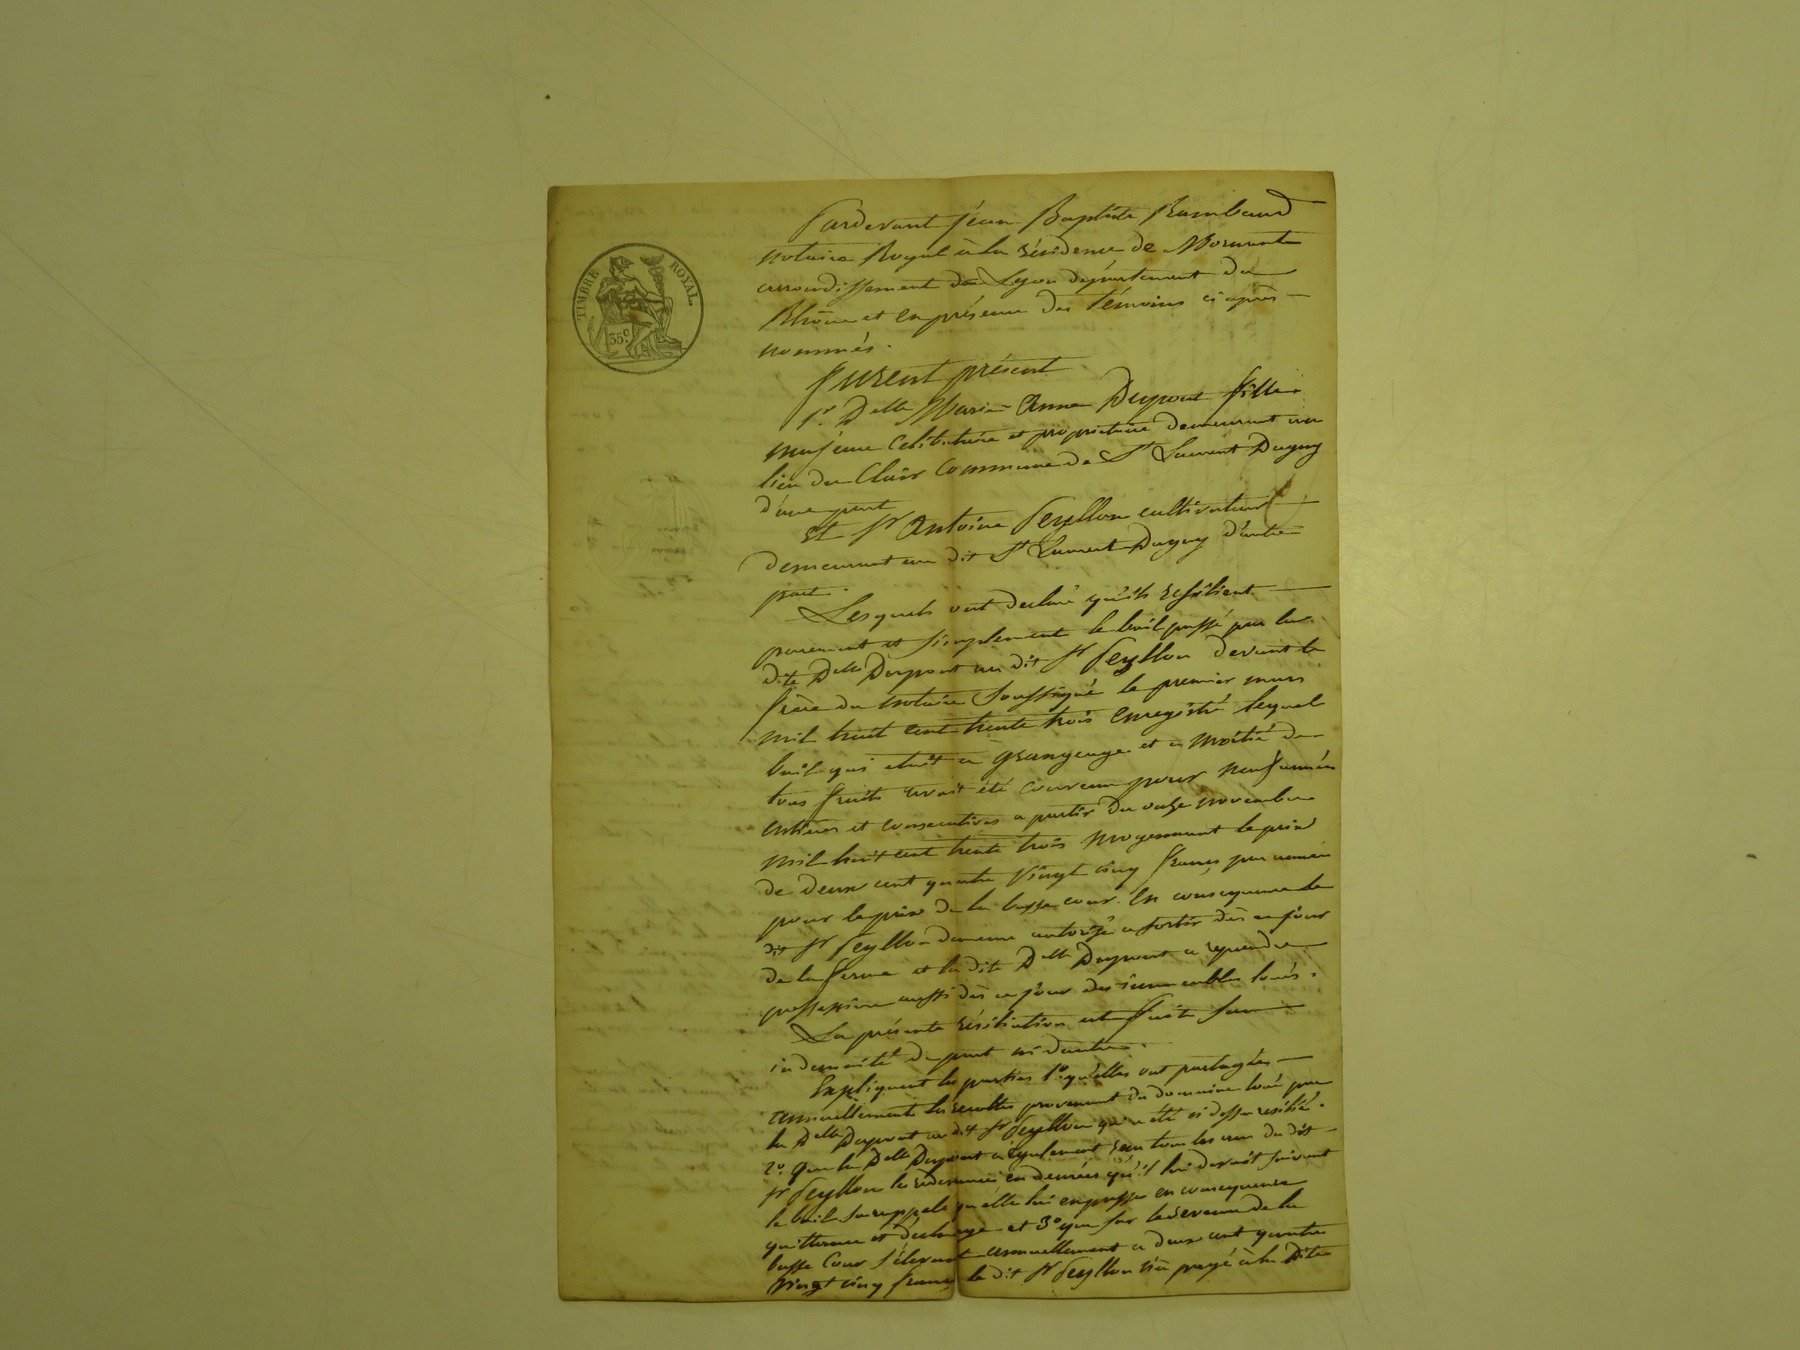 TIMBRE ROYAL.
35 c.
Pardevant Jean Baptiste Rambaud
notaire Royal à la résidence de Mornant
arrondissement de Lyon département du
Rhône et en présence des témoins ci après
nommés.
Furent présent
1° Delle Marie Anne Dupont fille
majeure celibataire et propriétaire demeurant au
lieu du Clair Commune de St Laurent Dagny
d'une part
Et Sr Antoine Peyllon cultivateur
demeurant au dit St Laurent Dagny d'autre
part.
Lesquels ont declaré qu'ils resilient
purement et simplement le bail passé par la
dite Delle Dupont au dit Sr Peyllon devant le
frère du notaire soussigné le premier mars
mil huit cent trente trois enregistré lequel
bail qui etait a grangeage et a moitié de
tous fruits avait été convenu pour neuf années
entières et consecutives a partir du onze novembre
mil huit cent trente trois moyennant le prix
de deux cent quatre vingt cinq francs par année
pour le prix de la basse cour. En consequence le
dit Sr Peyllon demeure autorisé a sortir dès ce jour
de la ferme et la dite Delle Dupont a reprendre
possession aussi dès ce jour des immeubles loués.
La présente résiliation est faite sans
indemnité de part ni dautre.
Expliquent les parties 1° qu'elles ont partagées
annuellement les recoltes provenant du domaine loué par
la Delle Dupont au dit Sr Peyllon qui a été ci dessus resilié.
2° Que la Delle Dupont a également reçu tous les ans du dit
Sr Peyllon les redevances en denrées qu'il lui devait suivant
le bail surappelé qu'elle lui en passe en consequence
quittance et décharge et 3° que sur les revenus de la
basse Cour s'élevant annuellement a deux cent quatre
vingt cinq francs le dit Sr Peyllon n'a payé à la dite